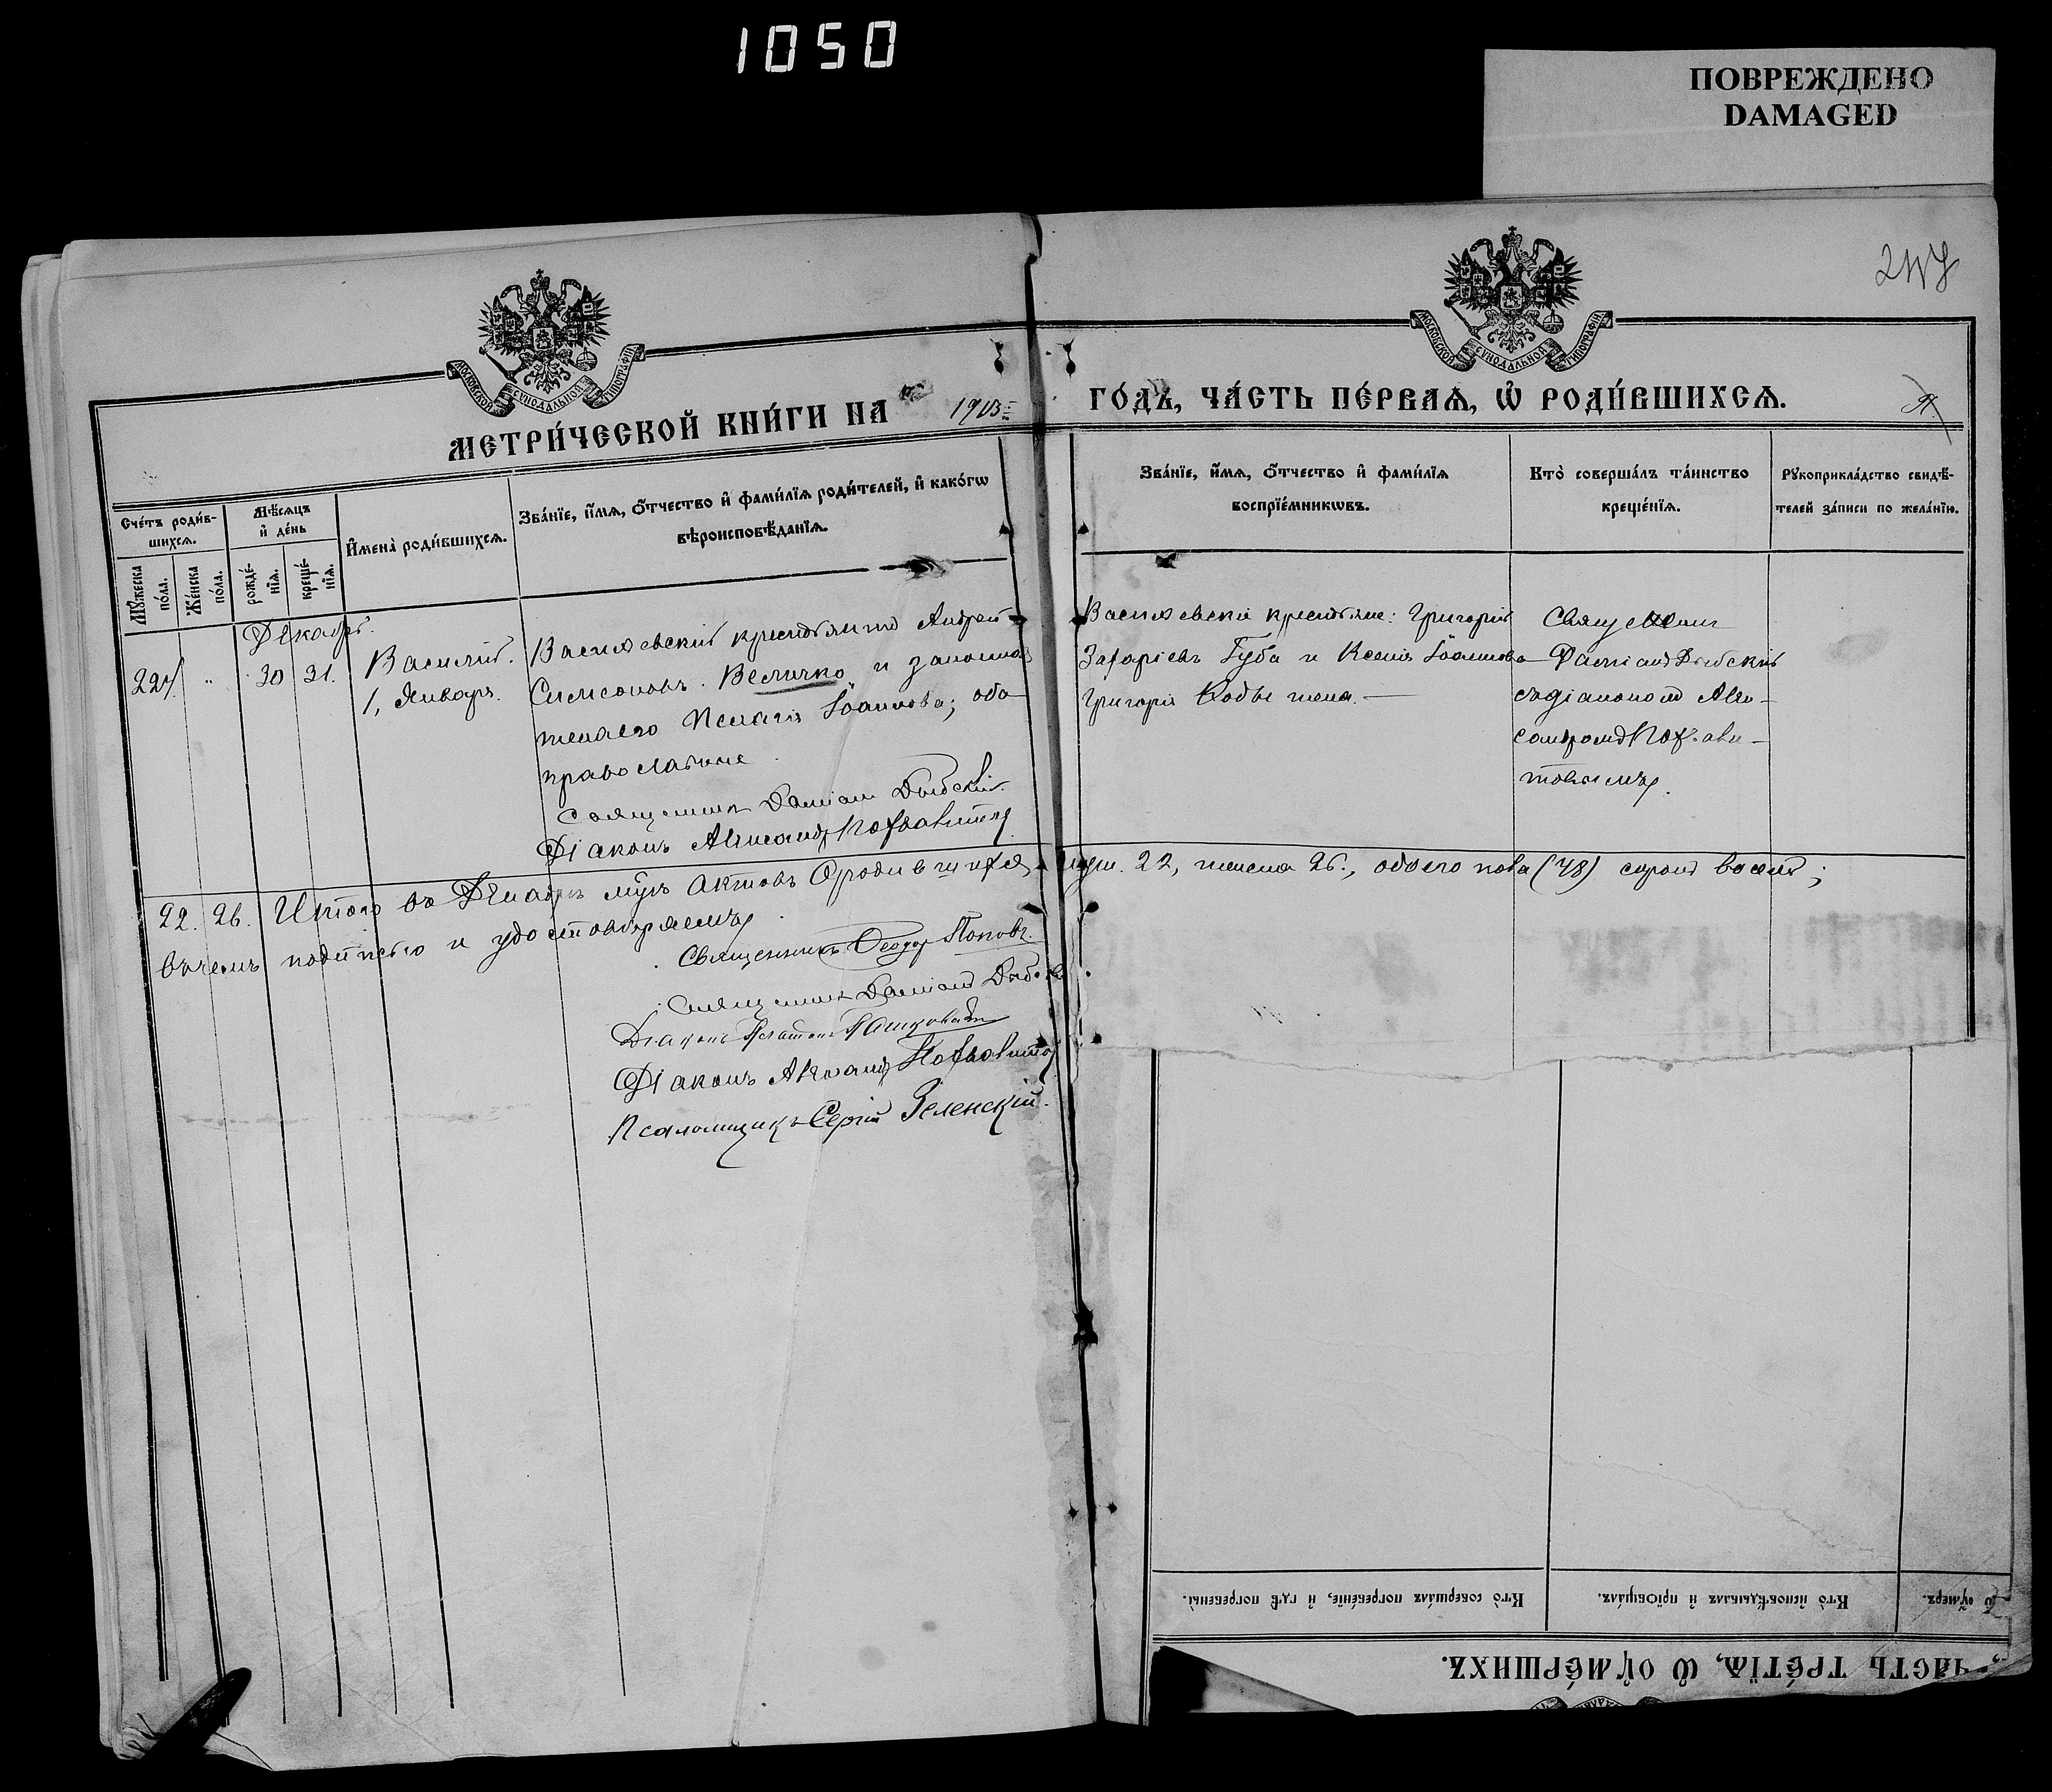 1050
ПОВРЕЖДЕНО
DAMAGED
МОСКОВСКОЙ СѴНОДАЛЬНОЙ ТИПОГРАФІИ
МОСКОВСКОЙ СѴНОДАЛЬНОЙ ТИПОГРАФІИ
МЕТРИ́ЧЕСКОЙ КНИ́ГИ НА 1913 ГО́ДЪ, ЧА́СТЬ ПЕ́РВАѦ, Ѡ҆ РОДИ́ВШИХСѦ.
Сче́тъ роди́в-
шихсѧ.
Мꙋ́жеска
по́ла.
Же́нска
по́ла.
Мѣ́сѧцъ
и҆ де́нь
рожде́-
нїѧ.
креще́-
нїѧ.
И҆мена̀ роди́вшихсѧ.
Зва́нїе, и҆́мѧ, ѻ҆́тчество и҆ фами́лїѧ роди́телей, и҆ како́гѡ
вѣроисповѣ́данїѧ.
Зва́нїе, и҆́мѧ, ѻ҆́тчество и҆ фами́лїѧ
воспрїе́мникѡвъ.
Кто̀ соверша́лъ та́инство
креще́нїѧ.
Рꙋкоприкла́дство свидѣ́-
телей за́писи по жела́нїю.
Декабрь.
224. " 30 31. Василій.
1, Января.
Васильевскій крестьянинъ Андрей
Симеоновъ Величко и законная
жена его Пелагія Іоаннова; оба
православные
Священникъ Даміанъ
Діаконъ Александръ
Васильевскіе крестьяне: Григорій
Захаріевъ Губа и Ксенія Іоаннова
Григорія Кобы жена. —
Священникъ
Даміанъ
съ діакономъ Алек-
сандромъ Похви-
товымъ.
22. 26. Итого въ Декабрѣ м-цѣ актовъ о родившихся муж. 22, женска 26., обоего пола (48) сорокъ восемь;
въ чемъ подписью и удостовѣряемъ
Священникъ Ѳеодоръ Поповъ.
Священникъ Даміанъ
Діаконъ Платонъ
Діаконъ Александръ
Псаломщикъ Сергій Зеленскій.
Кто̀ соверша́лъ погребе́нїе, и҆ гдѣ̀ погребены̀.
Кто̀ и҆сповѣ́дывалъ и҆ прїѡбща́лъ.
ѹ҆́меръ.
ЧА́СТЬ ТРЕ́ТЇѦ, Ѡ҆ ОУ҆МЕ́РШИХЪ.